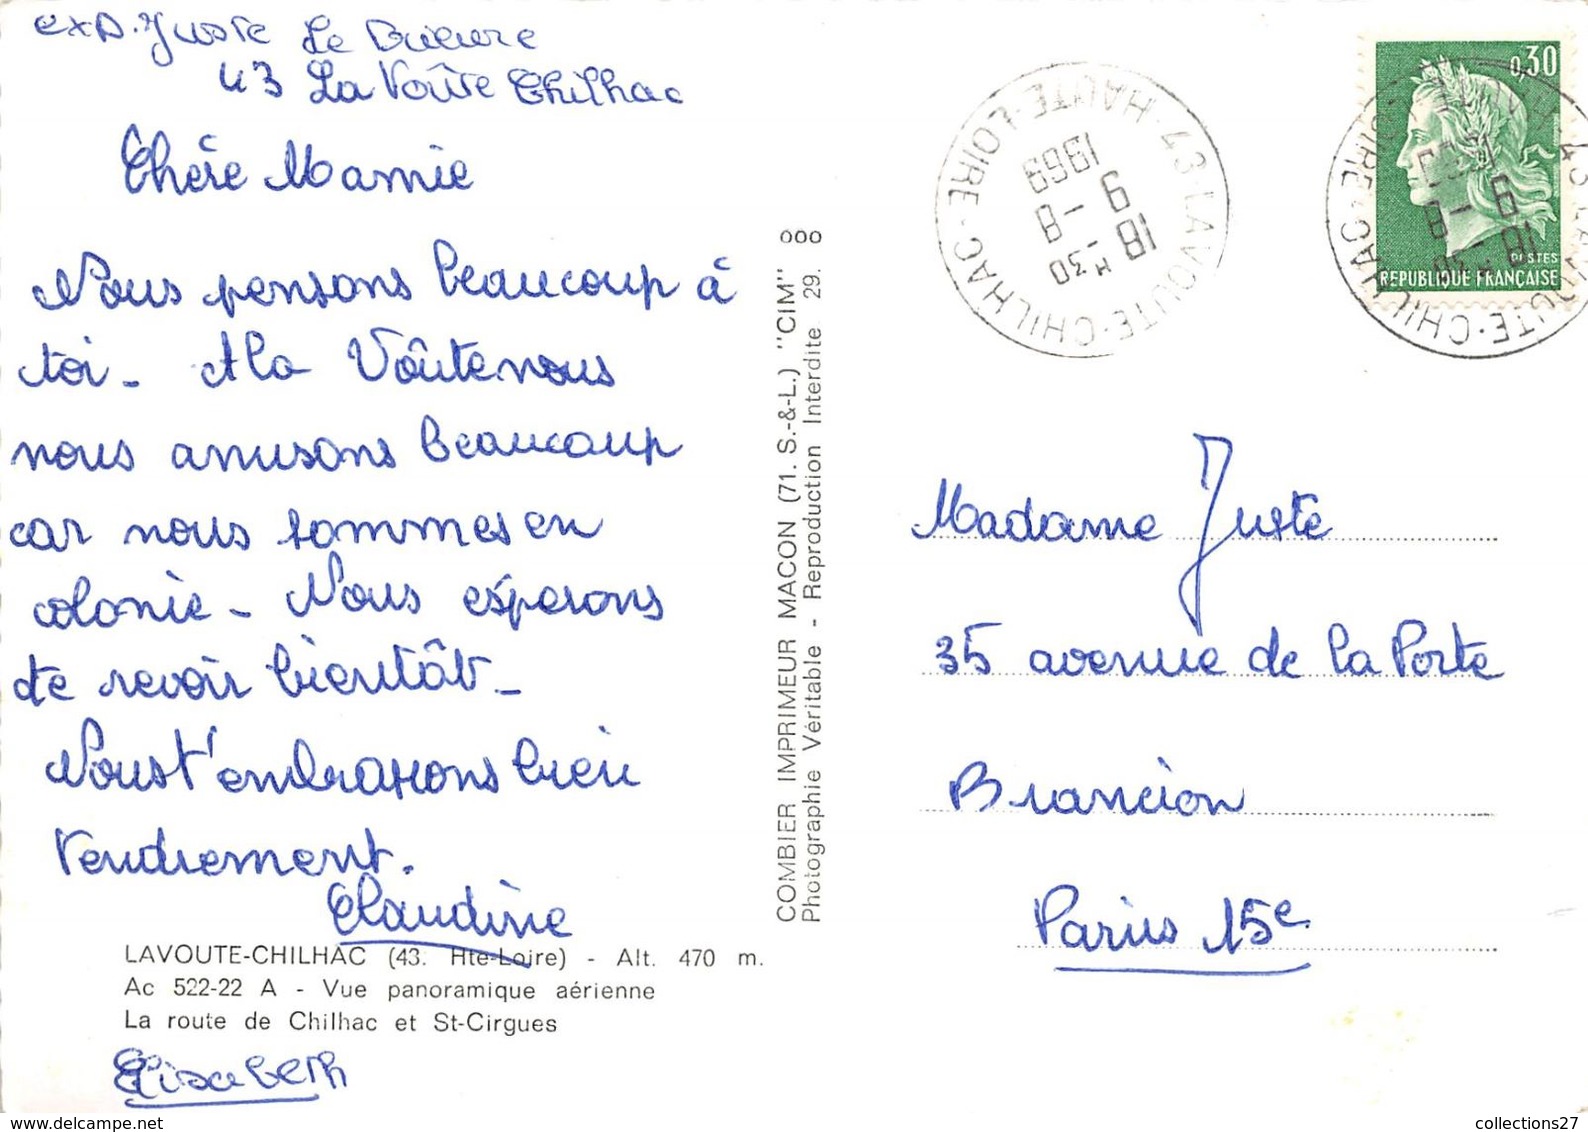 exp. Juste Le Prieuré
43 La Voûte Chilhac
Chère Mamie
Nous pensons beaucoup à
toi - A la Voûte nous
nous amusons beaucoup
car nous sommes en
colonie - Nous espérons
te revoir bientôt -
Nous t'embrassons bien
tendrement.
Claudine
LAVOUTE-CHILHAC (43. Hte-Loire) - Alt. 470 m.
Ac 522-22 A - Vue panoramique aérienne
La route de Chilhac et St-Cirgues
Elisabeth
COMBIER IMPRIMEUR MACON (71. S.-&-L.) "CIM" ooo
Photographie Véritable - Reproduction Interdite 29.
43-LAVOUTE-CHILHAC · HAUTE-LOIRE
18 H 30
9 - 8
1969
0,30
POSTES
REPUBLIQUE FRANÇAISE
43 LAVOUTE-CHILHAC · HAUTE-LOIRE
18 H 30
9 - 8
1969
Madame Juste
35 avenue de la Porte
Brancion
Paris 15e
collections27